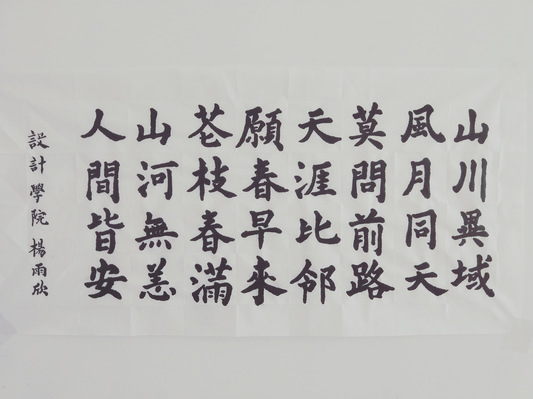 山川異域
風月同天
莫問前路
天涯比邻
願春早來
花枝春滿
山河無恙
人間皆安
設計學院 楊雨欣